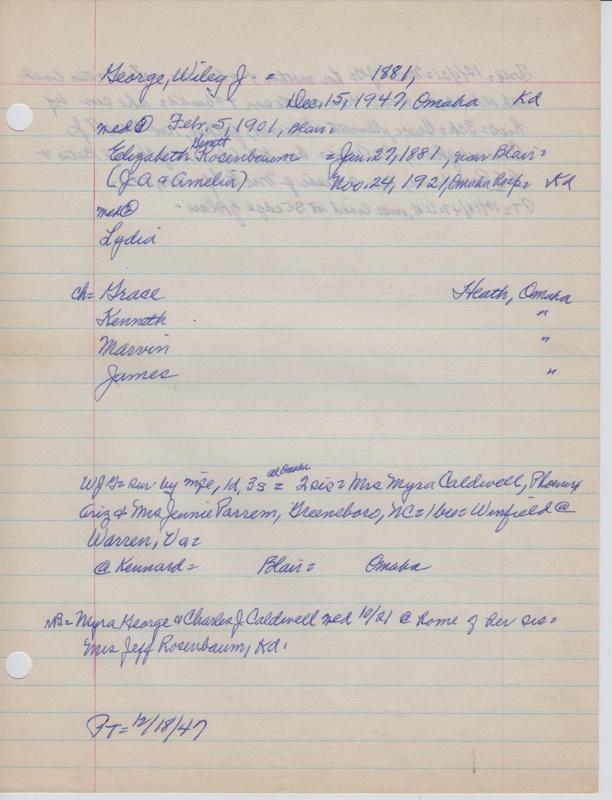 George, Wiley J. = 1881,
Dec. 15, 1947, Omaha Kd
med ① Feb. 5, 1901, Blair=
Hyatt
Elizabeth Rosenbaum = Jan. 27, 1881, near Blair=
(J A & Amelia) Nov. 24, 1921, Omaha hosp= Kd
med ②
Lydia
ch= Grace Heath, Omaha
Kenneth "
Marvin "
James "
all Omaha
WJG= sur by wife, 1d, 3s = 2 sis= Mrs Myra Caldwell, Phoenix
Ariz & Mrs Jennie Parrem, Greensboro, NC= 1 bro= Winfield @
Warren, Va=
@ Kennard= Blair= Omaha
NB= Myra George & Charles J Caldwell med 10/21 @ home of her sis=
Mrs Jeff Rosenbaum, Kd.
PT= 12/18/47